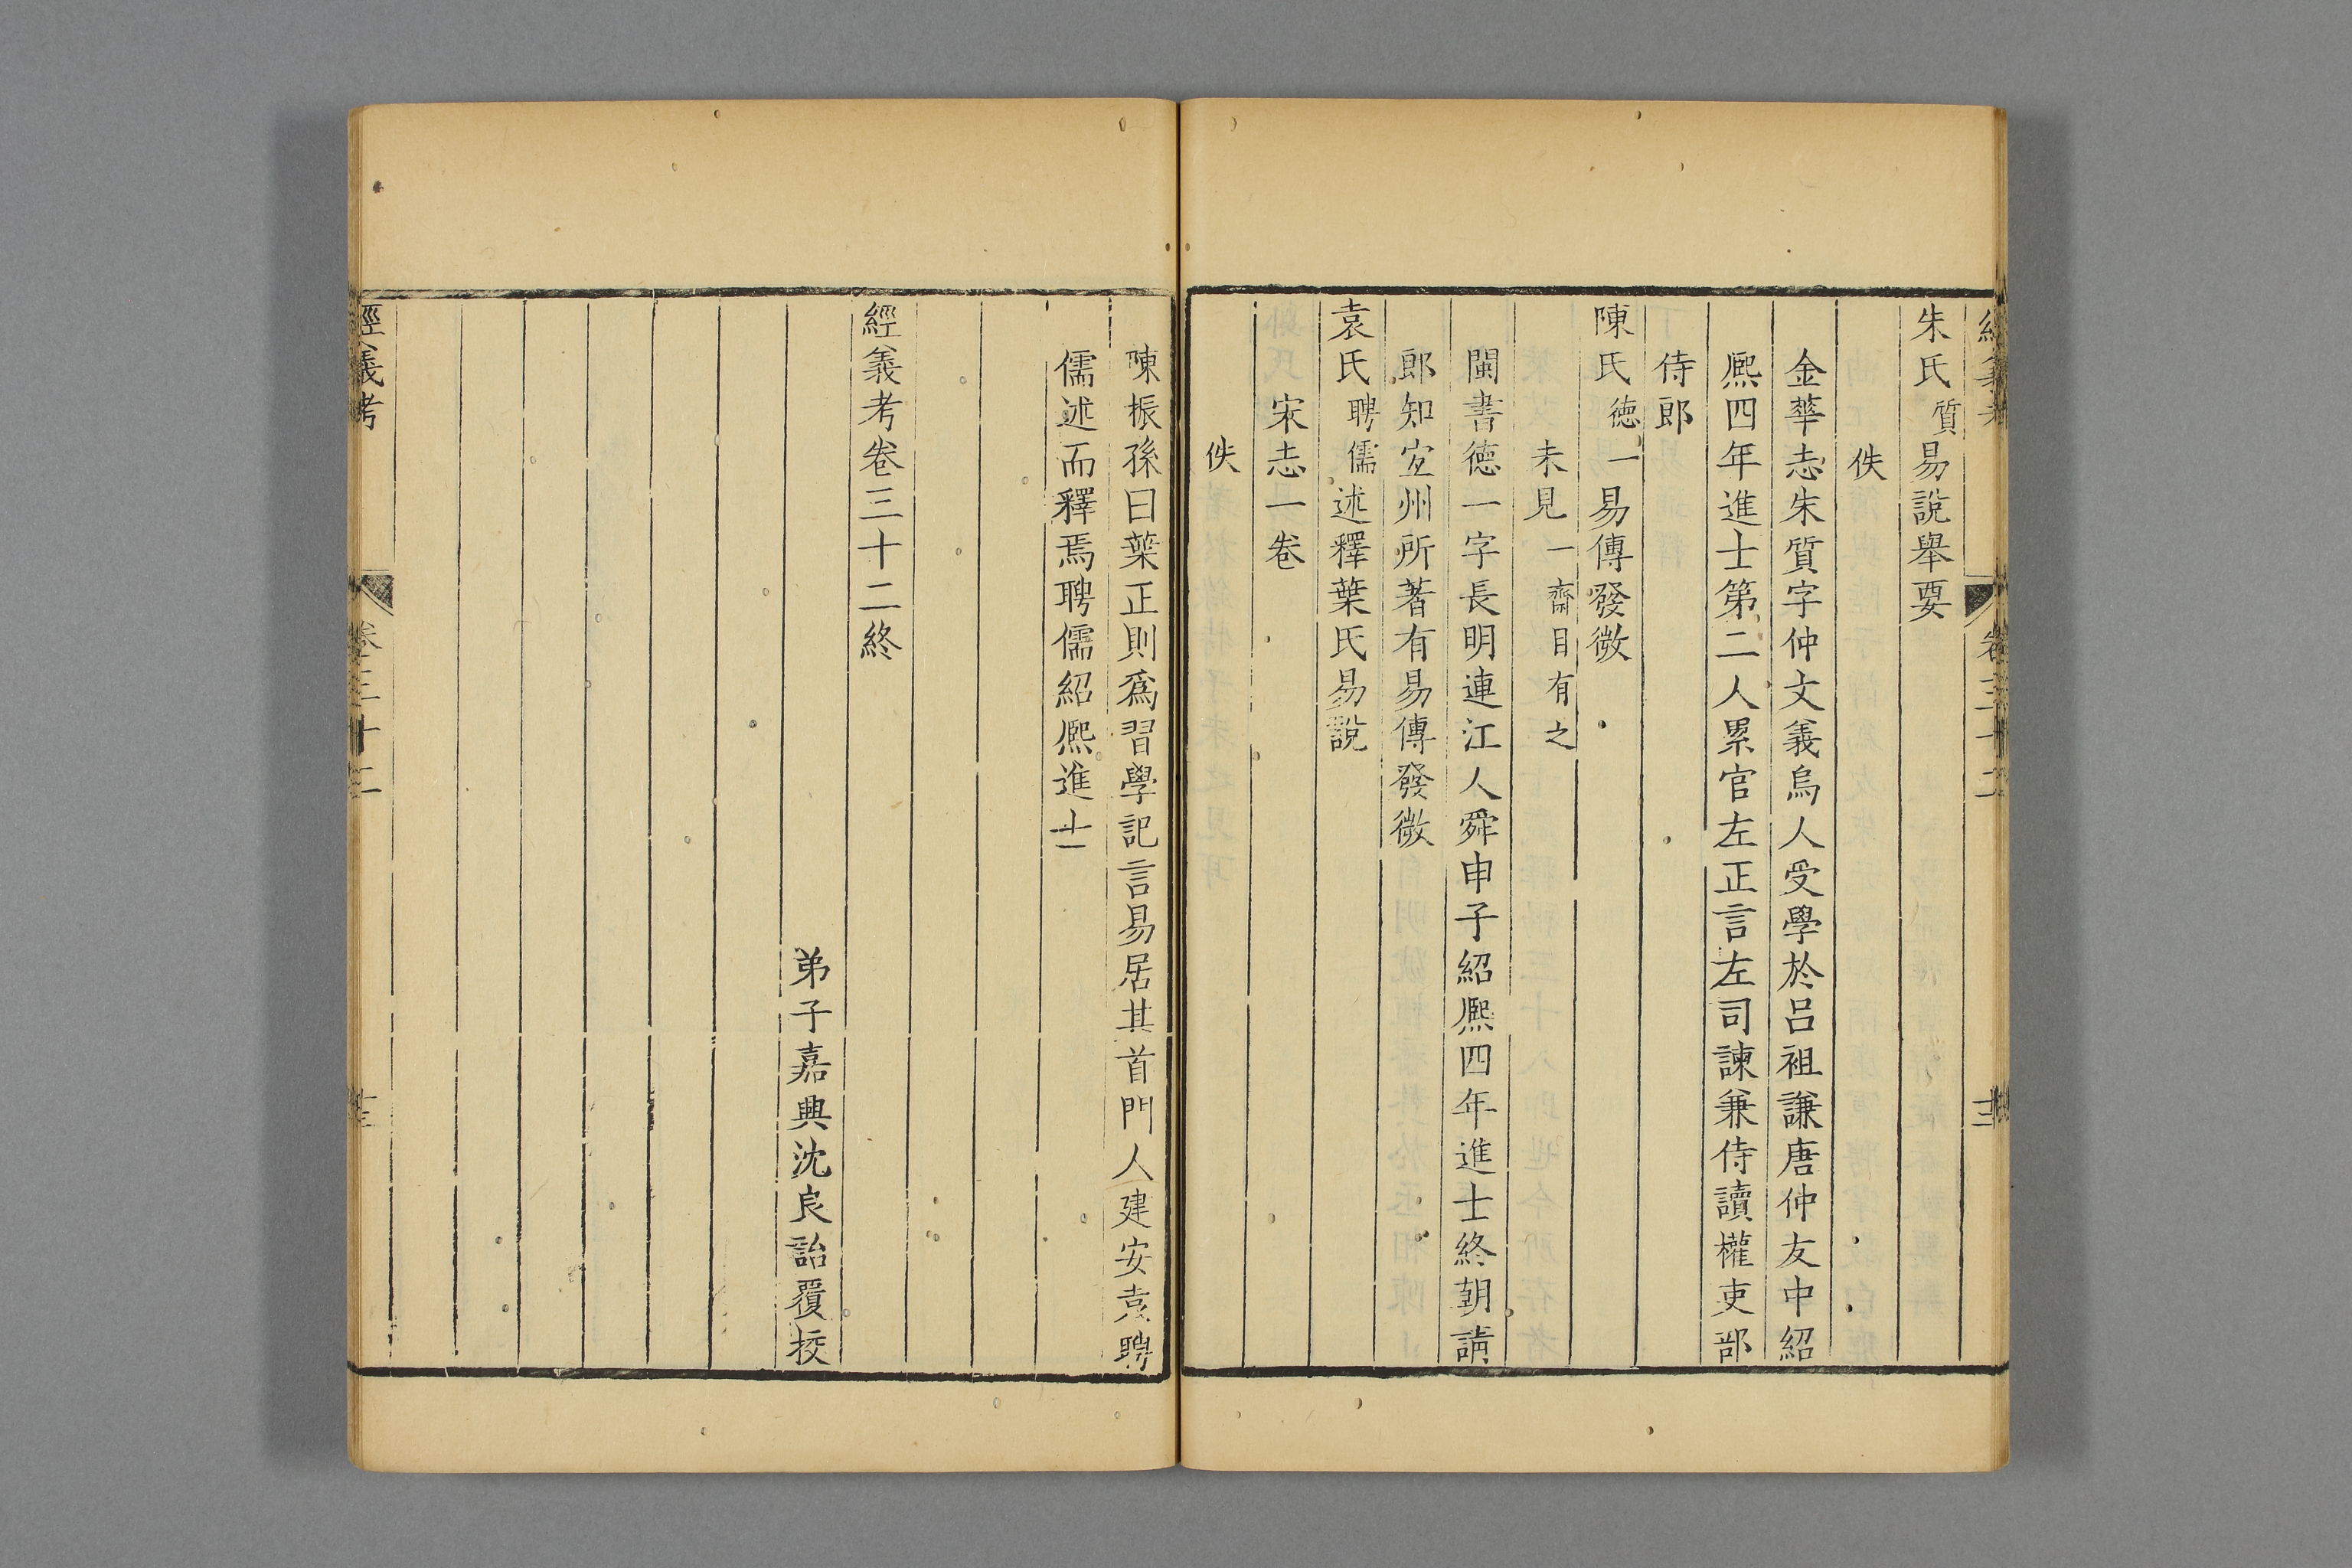 經義考 卷三十二
朱氏質易說舉要
佚
金華志朱質字仲文義烏人受學於呂祖謙唐仲友中紹
熈四年進士第二人累官左正言左司諫兼侍讀權吏部
侍郎
陳氏德一易傳發微
未見一齋目有之
閩書德一字長明連江人舜申子紹熈四年進士終朝請
郎知宜州所著有易傳發微
袁氏聘儒述釋葉氏易說
宋志一卷
佚
陳振孫曰葉正則爲習學記言易居其首門人建安袁聘
儒述而釋焉聘儒紹熈進士
經義考卷三十二終
弟子嘉興沈良詒覆挍
經義考 卷三十二